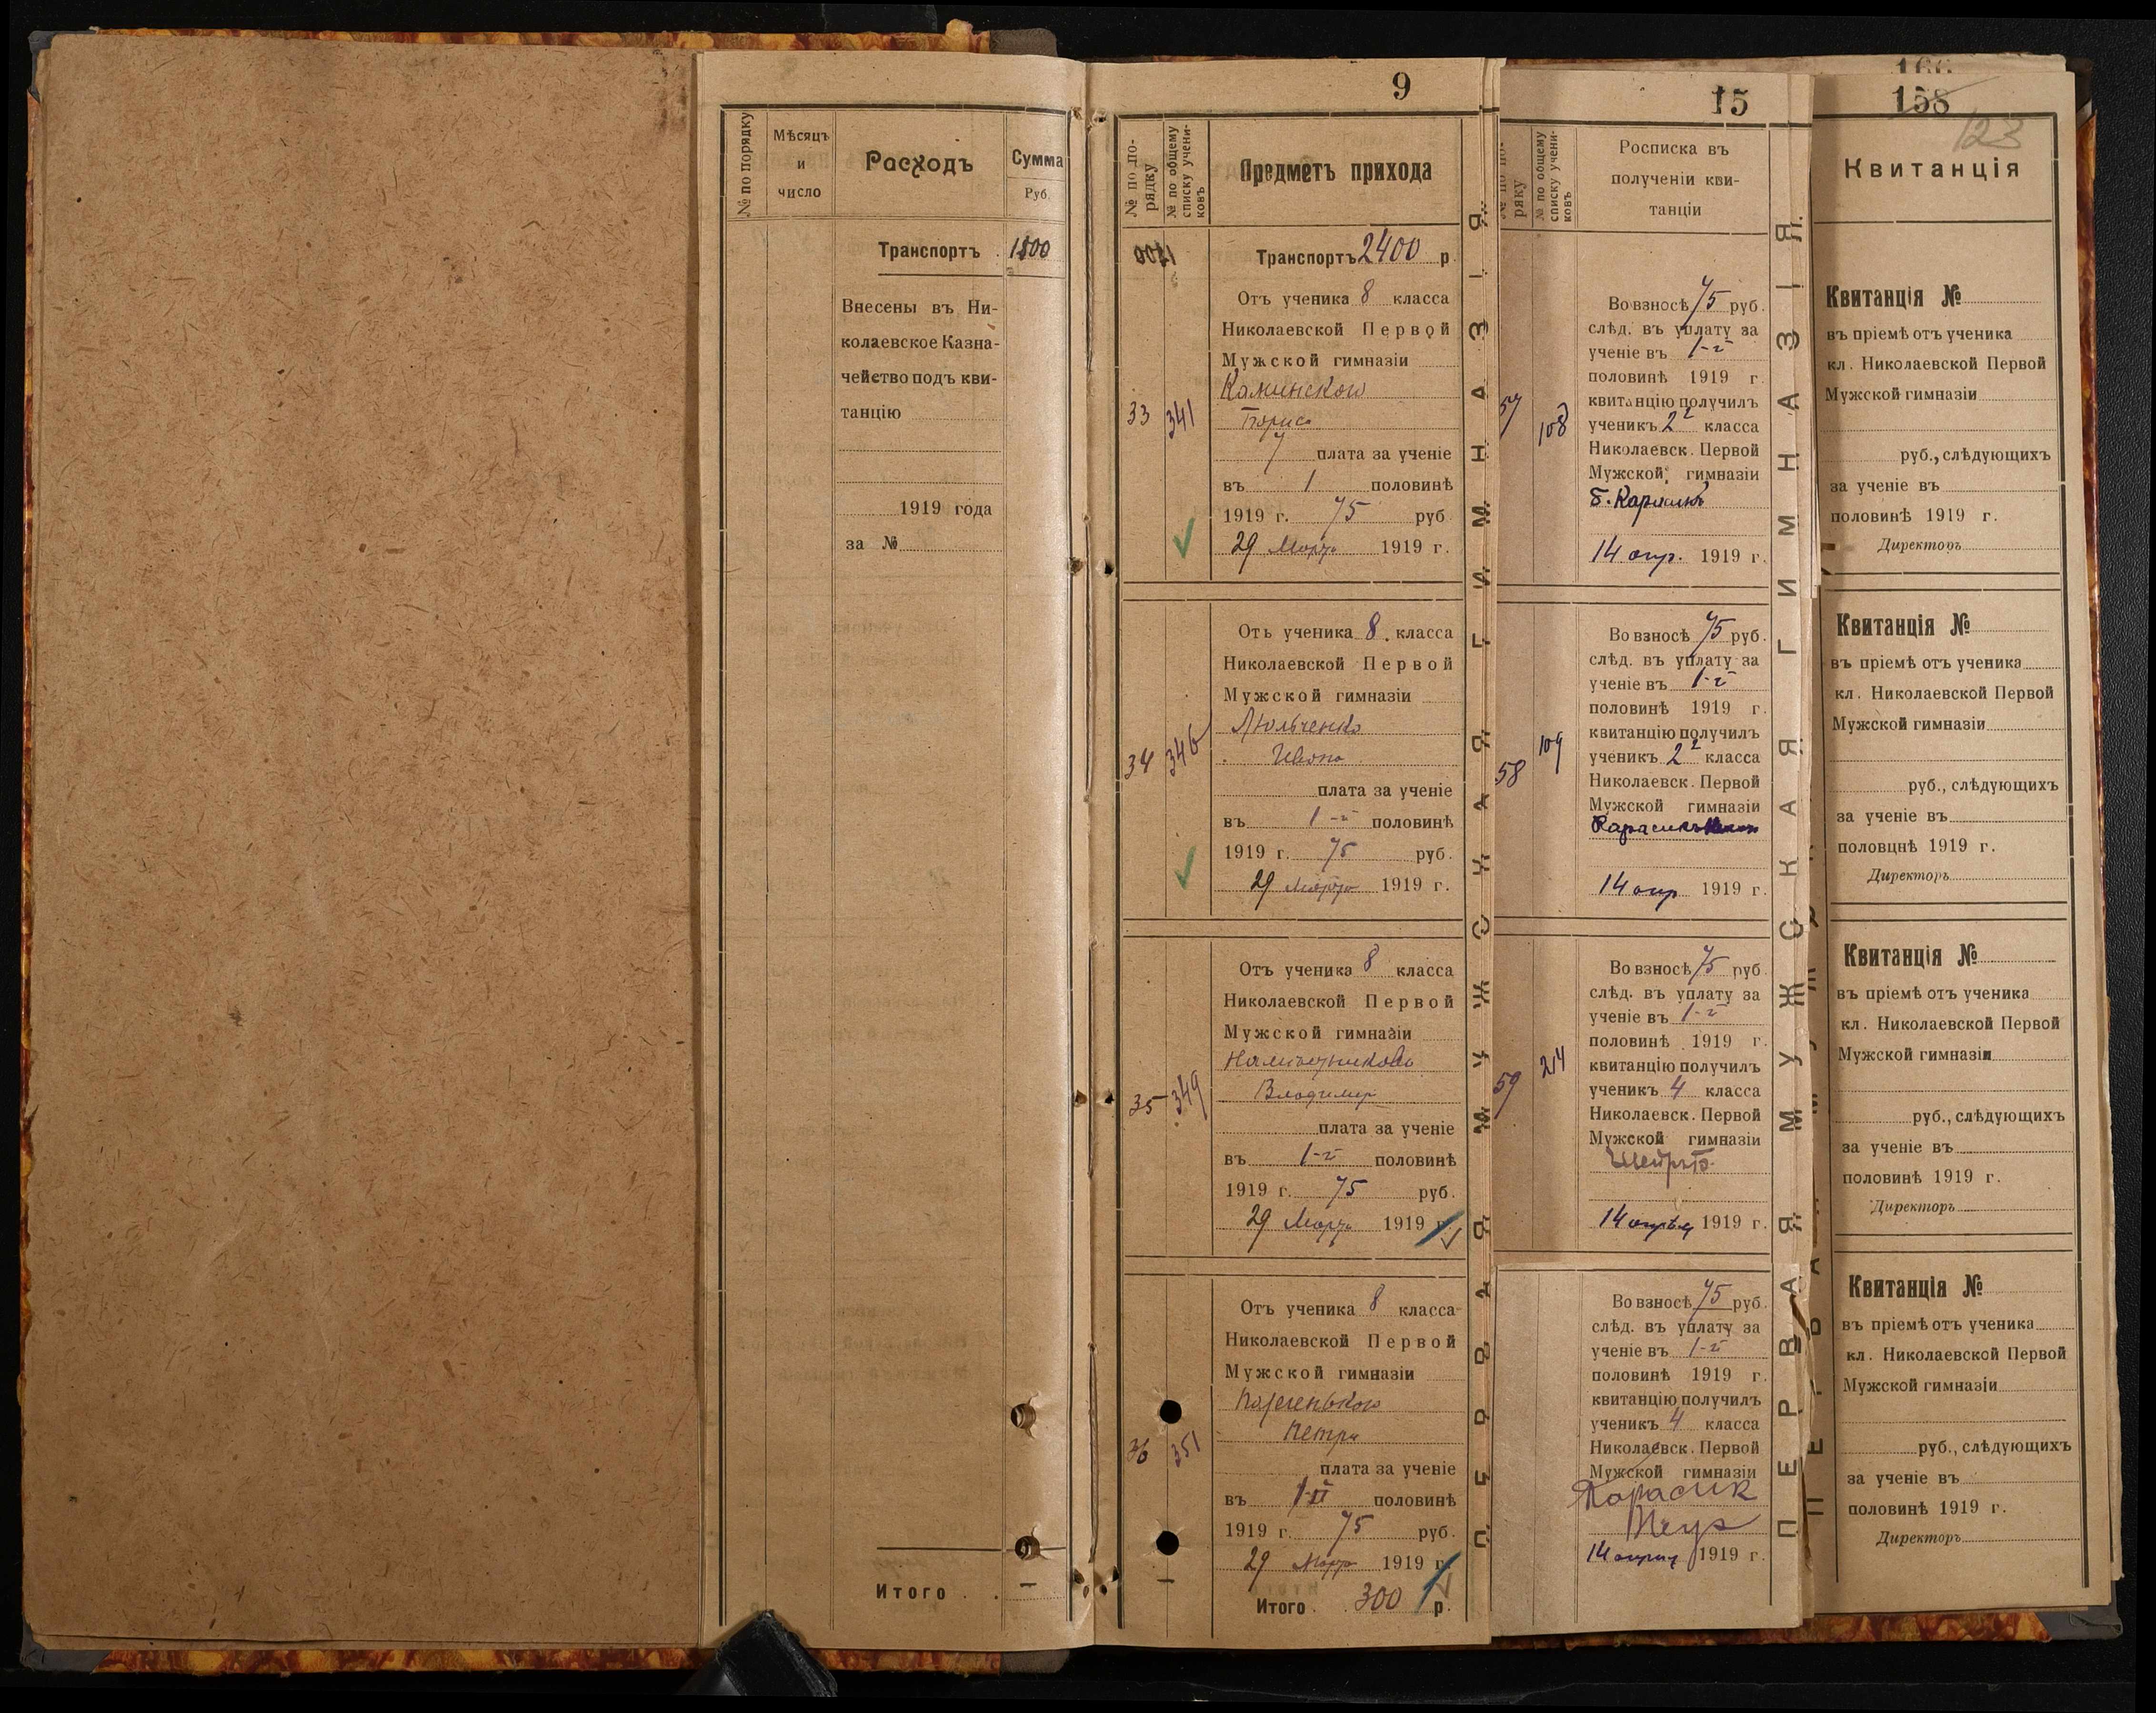 № по порядку
Мѣсяцъ
и
число
Расходъ
Сумма
Руб.
Транспортъ . 1800
Внесены въ Ни-
колаевское Казна-
чейство подъ кви-
танцію
1919 года
за №
Итого . . —
9
№ по по-
рядку
№ по общему
списку учени-
ковъ
Предметъ прихода
Транспортъ 2400 р
33
341
Отъ ученика 8 класса
Николаевской Первой
Мужской гимназіи
Каминского
Бориса
плата за ученіе
въ 1 половинѣ
1919 г. 75 руб
29 Марта 1919 г.
34
346
Отъ ученика 8 класса
Николаевской Первой
Мужской гимназіи
Люльченко
Ивана
плата за ученіе
въ 1-й половинѣ
1919 г. 75 руб.
29 Марта 1919 г.
35
349
Отъ ученика 8 класса
Николаевской Первой
Мужской гимназіи
Владимир
плата за ученіе
въ 1-й половинѣ
1919 г. 75 руб.
29 Марта 1919 г.
36
351
Отъ ученика 8 класса
Николаевской Первой
Мужской гимназіи
Петра
плата за ученіе
въ половинѣ
1919 г. 75 руб.
29 Марта 1919 г.
Итого . 300 р.
ПЕРВАЯ МУЖСКАЯ ГИМНАЗІЯ.
15
№ по по-
ряку
№ по общему
списку учени-
ковъ
Росписка въ
полученіи кви-
танціи
57
108
Во взносѣ 75 руб.
слѣд. въ уплату за
ученіе въ 1-й
половинѣ 1919 г.
квитанцію получилъ
ученикъ 2² класса
Николаевск. Первой
Мужской гимназіи
Б. Карасикъ
14 апр. 1919 г.
58
109
Во взносѣ 75 руб.
слѣд. въ уплату за
ученіе въ 1-й
половинѣ 1919 г.
квитанцію получилъ
ученикъ 2² класса
Николаевск. Первой
Мужской гимназіи
Карасикъ
14 апр 1919 г.
59
214
Во взносѣ 75 руб
слѣд. въ уплату за
ученіе въ 1-й
половинѣ 1919 г.
квитанцію получилъ
ученикъ 4 класса
Николаевск. Первой
Мужской гимназіи
14 апрѣля 1919 г.
Во взносѣ 75 руб.
слѣд. въ уплату за
ученіе въ 1-й
половинѣ 1919 г.
квитанцію получилъ
ученикъ 4 класса
Николаевск. Первой
Мужской гимназіи
Карасик
14 1919 г.
ПЕРВАЯ МУЖСКАЯ ГИМНАЗІЯ.
166
158
123
Квитанція
Квитанція №
въ пріемѣ отъ ученика
кл. Николаевской Первой
Мужской гимназіи
руб., слѣдующихъ
за ученіе въ
половинѣ 1919 г.
Директоръ
Квитанція №
въ пріемѣ отъ ученика
кл. Николаевской Первой
Мужской гимназіи
руб., слѣдующихъ
за ученіе въ
половцнѣ 1919 г.
Директоръ
Квитанція №
въ пріемѣ отъ ученика
кл. Николаевской Первой
Мужской гимназіи
руб., слѣдующихъ
за ученіе въ
половинѣ 1919 г.
Директоръ
Квитанція №
въ пріемѣ отъ ученика
кл. Николаевской Первой
Мужской гимназіи
руб., слѣдующихъ
за ученіе въ
половинѣ 1919 г.
Директоръ